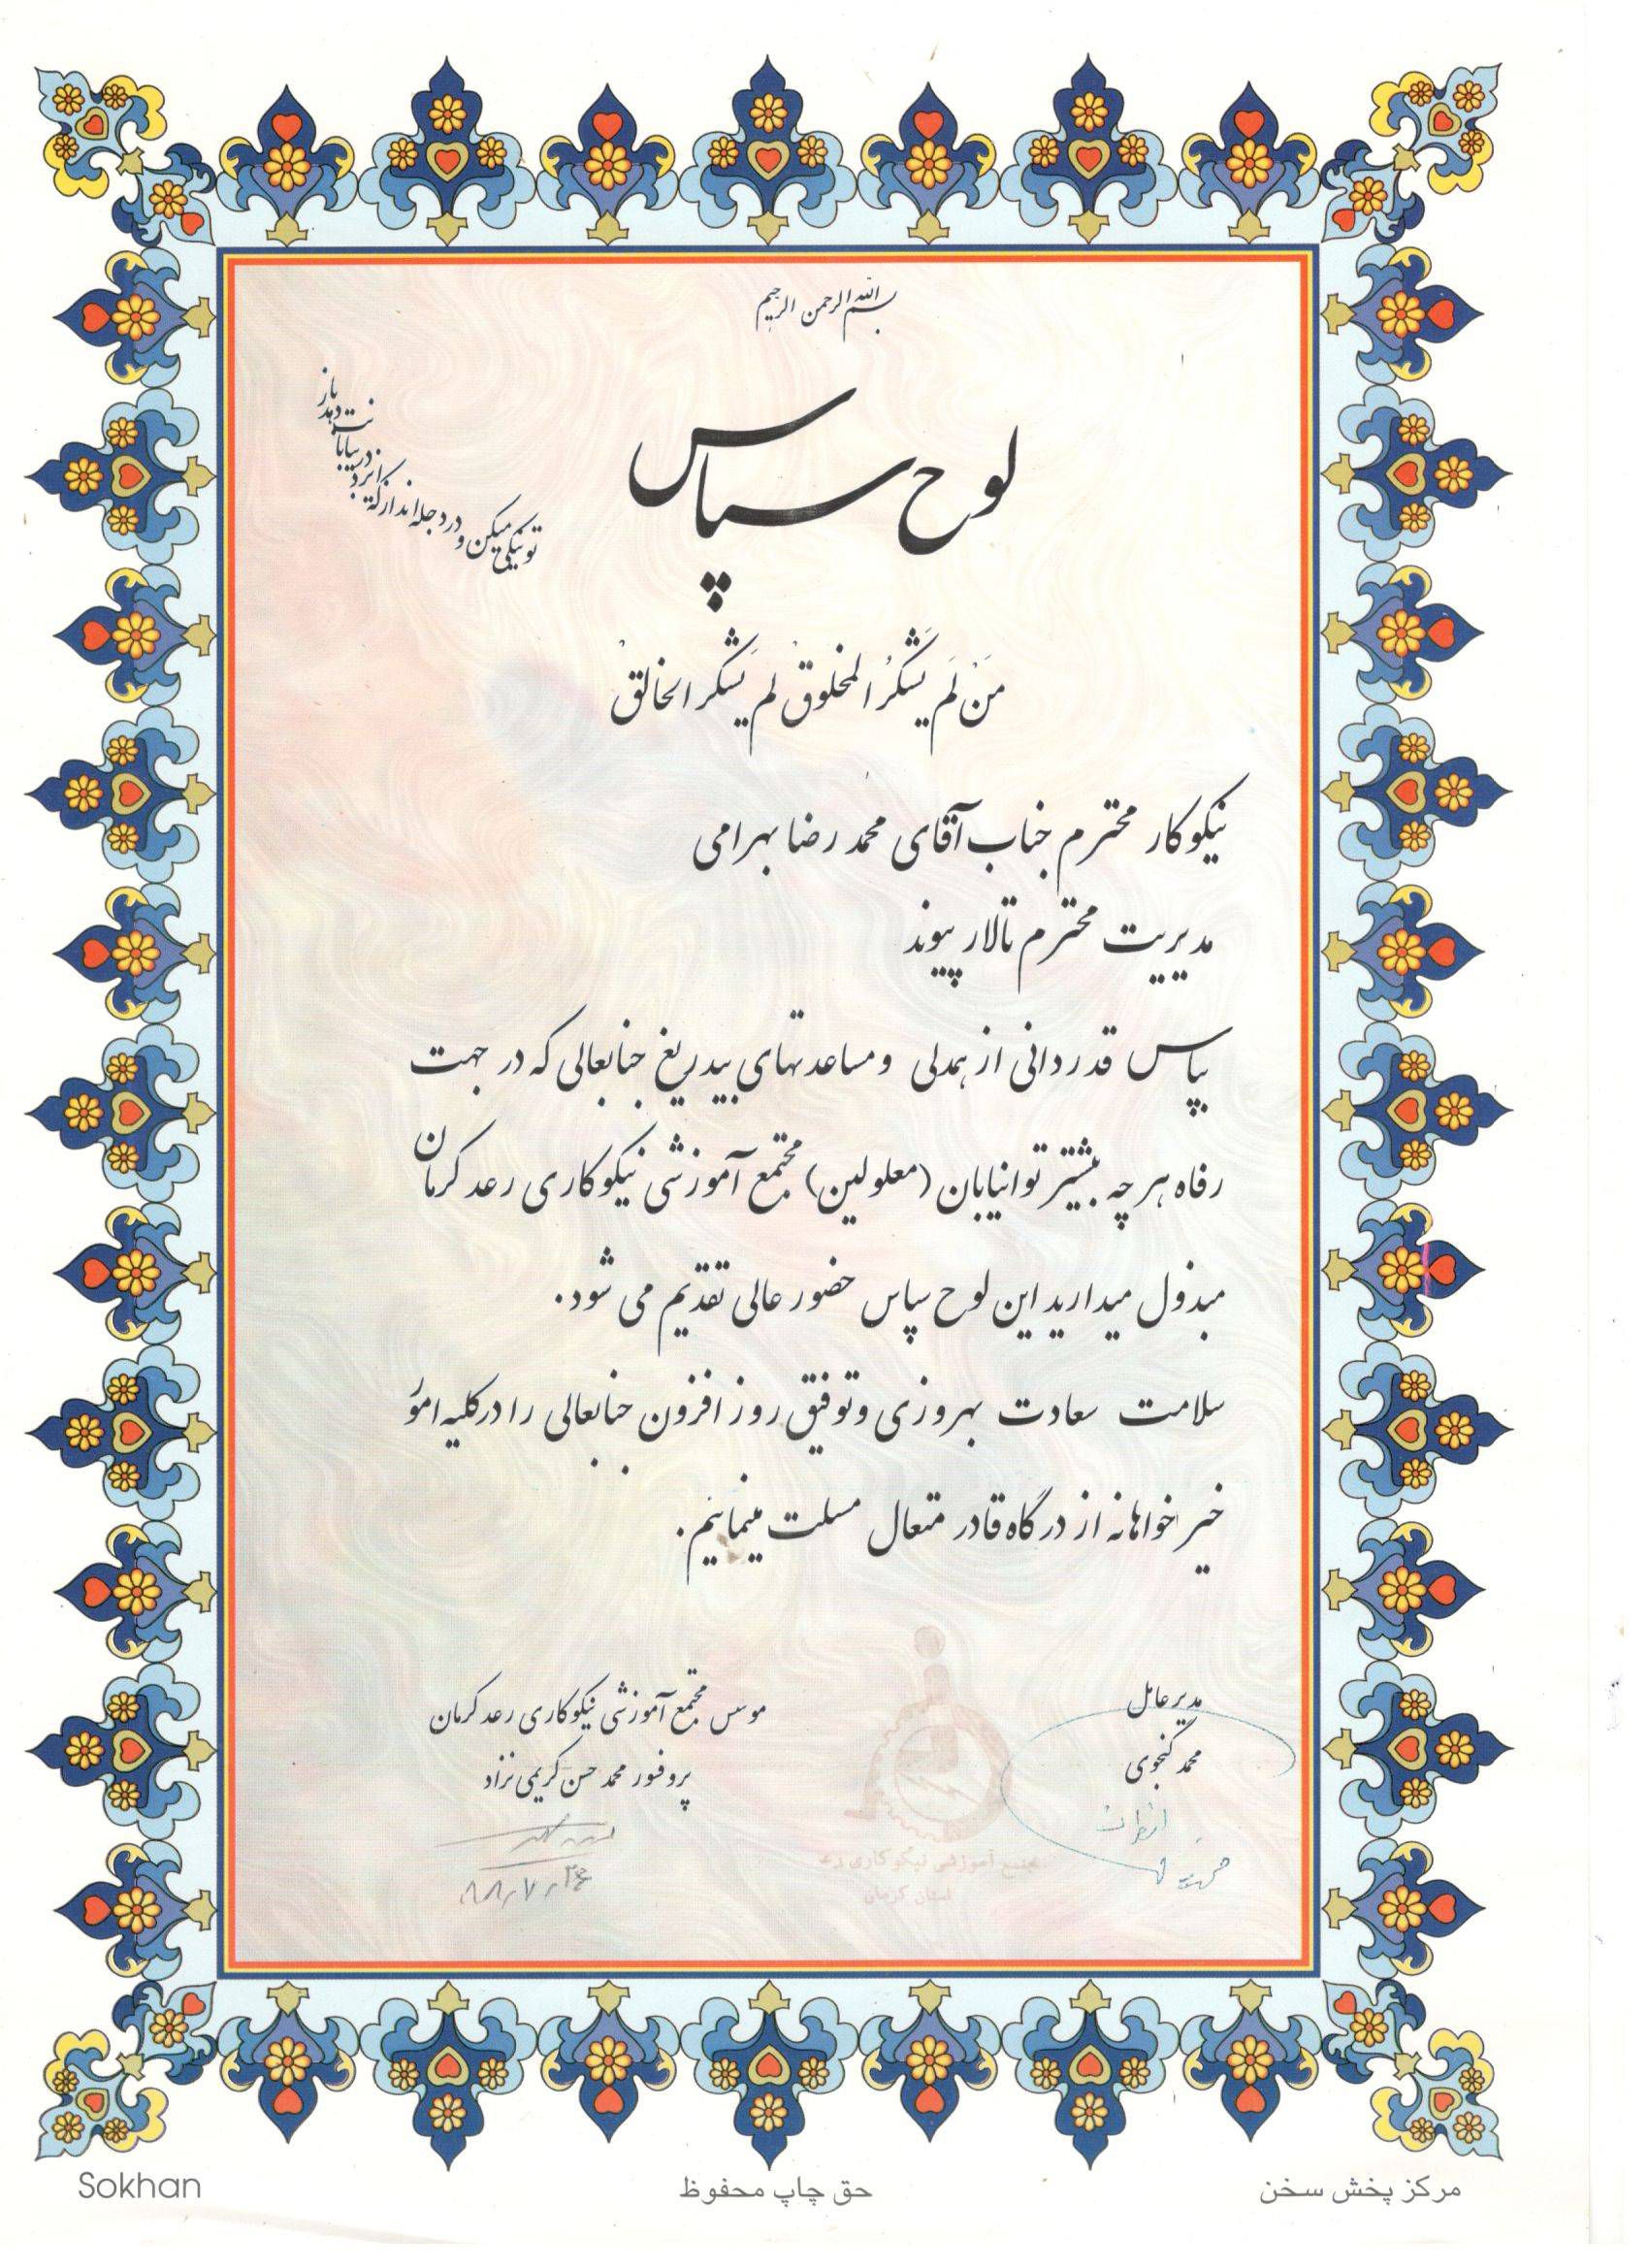 بسم الله الرحمن الرحیم
لوح سپاس
تو نیکی میکن و در دجله انداز که ایزد در بیابانت دهد باز
مَنْ لَم یَشکُرُ المخلوقْ لَم یَشکر الخالقْ
نیکوکار محترم جناب آقای محمد رضا بهرامی
مدیریت محترم تالار پیوند
بپاس قدردانی از همدلی و مساعدتهای بیدریغ جنابعالی که در جهت
رفاه هر چه بیشتر توانیابان (معلولین) مجتمع آموزشی نیکوکاری رعد کرمان
مبذول میدارید این لوح سپاس حضور عالی تقدیم می شود.
سلامت سعادت بهروزی و توفیق روز افزون جنابعالی را در کلیه امور
خیر خواهانه از درگاه قادر متعال مسلت مینمایم.
مدیر عامل
محمد گنجوی
موسس مجتمع آموزشی نیکوکاری رعد کرمان
پروفسور محمد حسن کریمی نژاد
مجتمع آموزشی نیکوکاری رعد
استان کرمان
مرکز پخش سخن
حق چاپ محفوظ
Sokhan